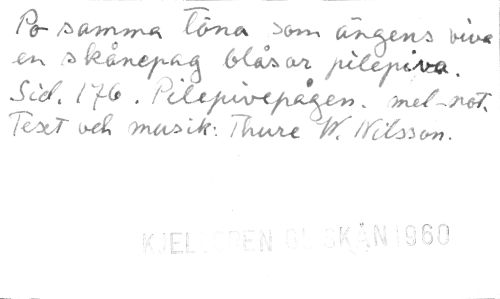 Po samma töna som ängens viva
en skånepåg blåsor pilepiva.
Sid. 176. Pilepivepågen. mel-not.
Text och musik: Thure W. Nilsson.
SKÅN 1960